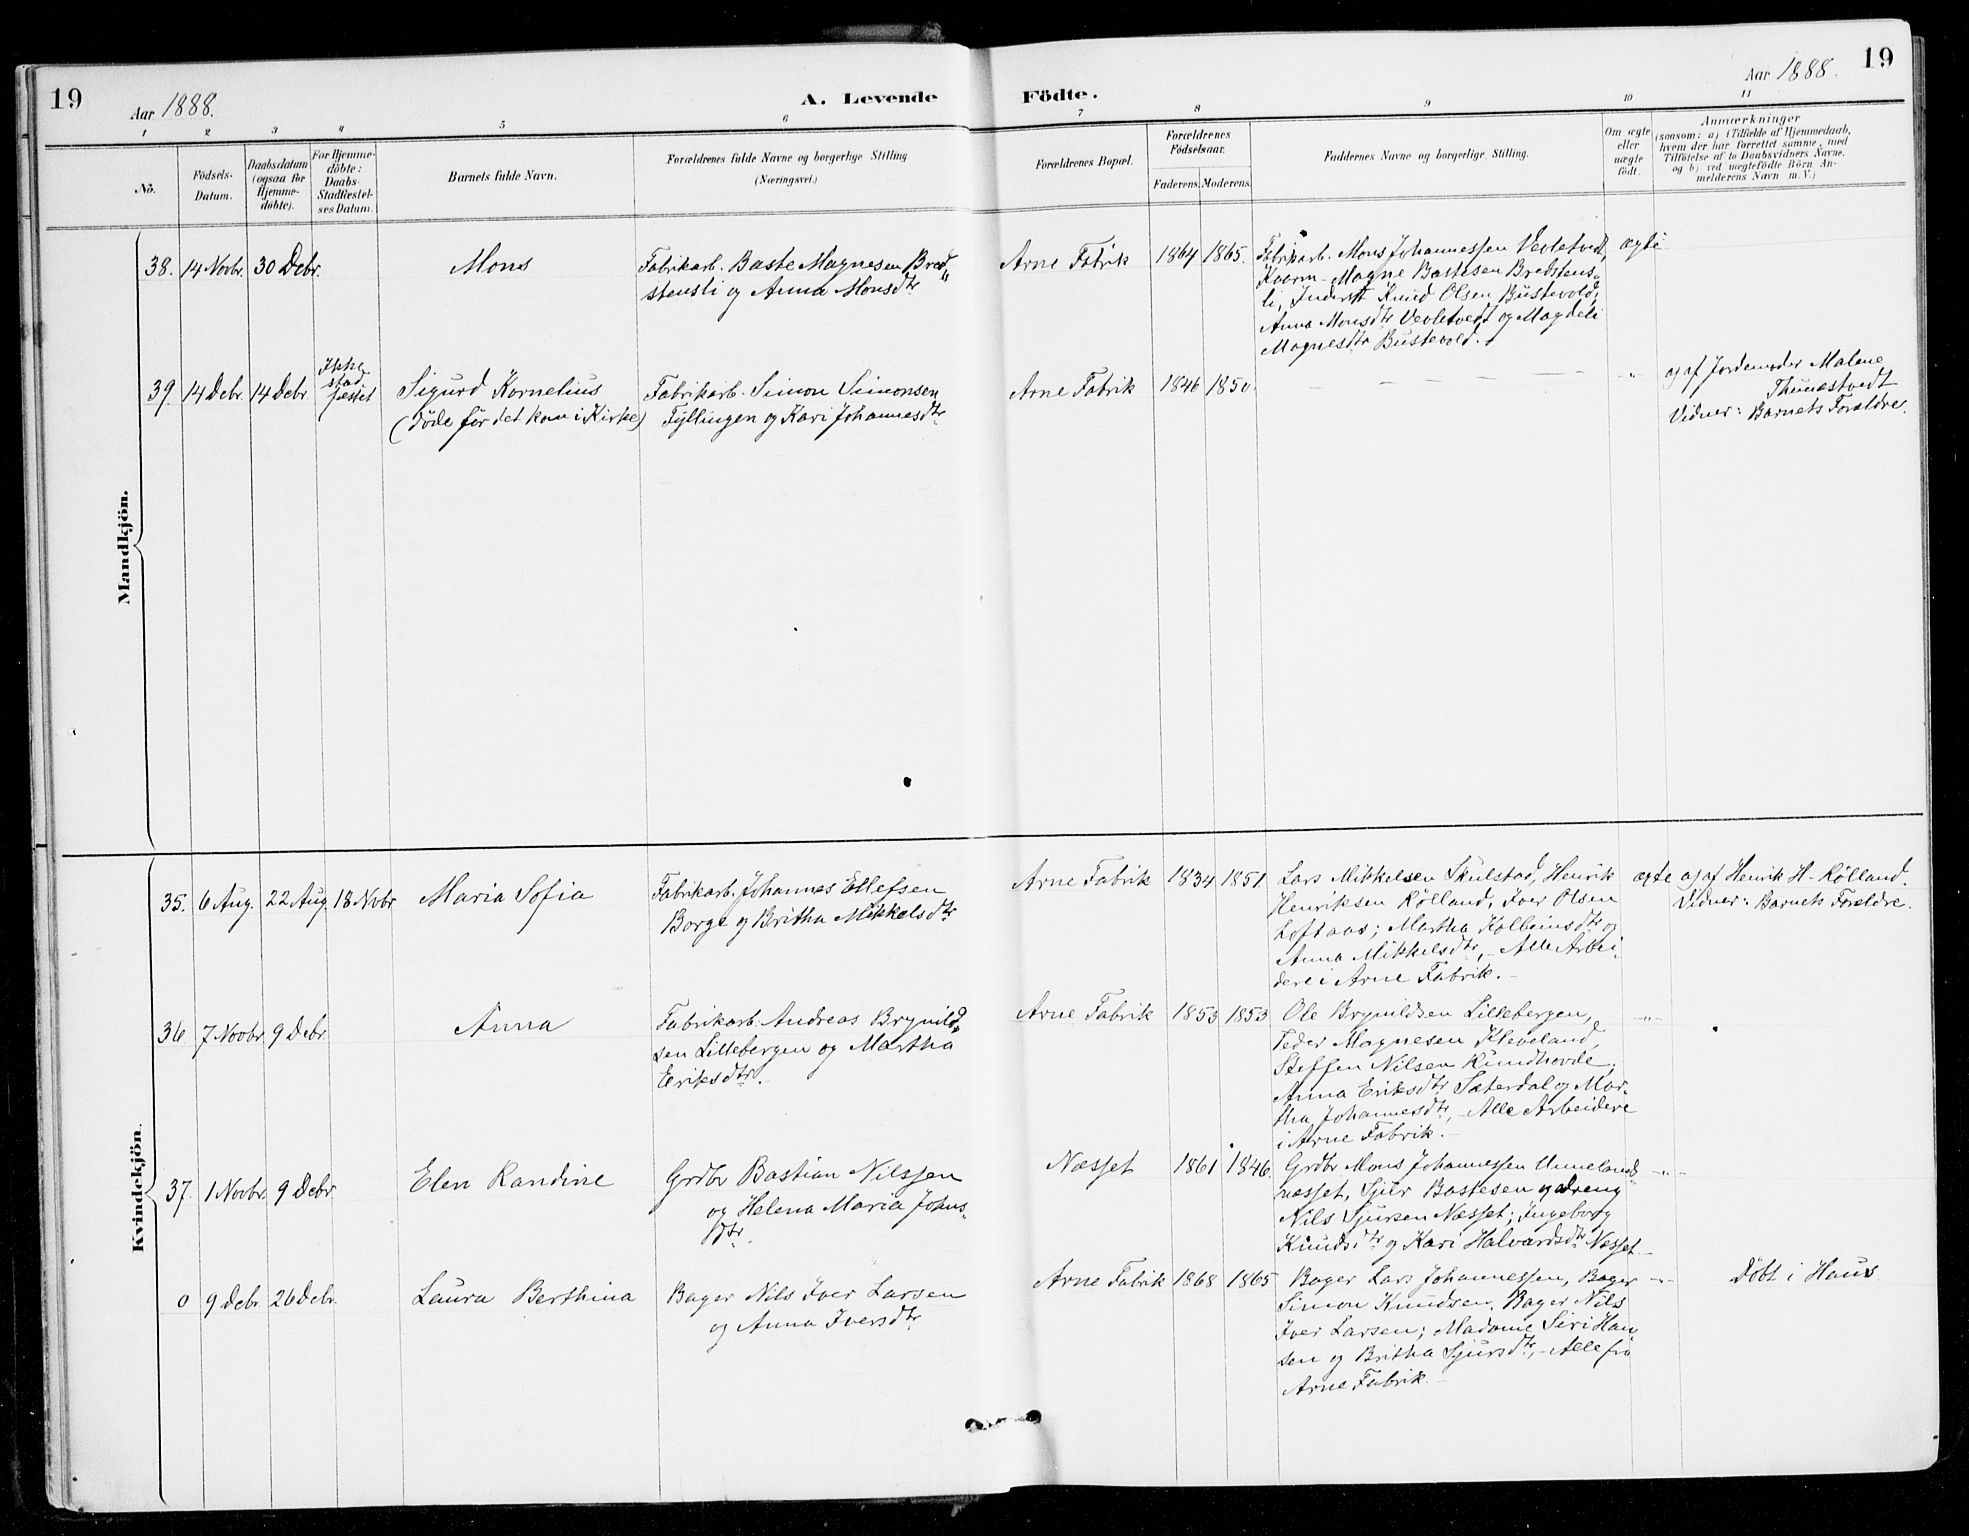 19 Aar 1888. A. Levende Födte. Aar 1888. 19
1 2 3 4 5 6 7 8 9 10 11
Nô. Födsels-Datum. Daabsdatum (ogsaa for Hjemmedöbte). For Hjemmedöbte: Daabs-Stadfæstelses Datum. Barnets fulde Navn. Forældrenes fulde Navne og borgerlige Stilling (Næringsvei.) Forældrenes Bopæl. Forældrenes Födselsaar. Faderens. Moderens. Faddernes Navne og borgerlige Stilling. Om ægte eller uægte födt. Anmærkninger (saasom: a) i Tilfælde af Hjemmedaab, hvem der har forrettet samme, med Tilföielse af to Daabsvidners Navne, og b) ved uægtefödte Börn Anmelderens Navn m. V.)
Mandkjön.
38. 14 Novbr. 30 Debr. Mons
Fabrikarb. Baste Magnesen Bred-
stensli og Anna Monsdtr
Arne Fabrik 1864 1865.
Fabrikarb. Mons Johannessen Vevletvedt,
Kvarm- Magne Bastesen Bredstens-
li, Inderst Knud Olsen Bustevold;
Anna Monsdtr Vevletvedt og Magdeli
Magnesdtr Bustevold.
ægte
39. 14 Debr. 14 Debr.
Ikke
stad
fæstet
Sigurd Kornelius
(døde før det kom i Kirke)
Fabrikarb. Simon Simonsen
Fyllingen og Kari Johannesdtr
Arne Fabrik 1846 1850. — — — — — — "
a, af Jordemoder Malene
Thunestvedt
Vidner: Barnets Forældre.
Kvindekjön.
35. 6 Aug. 22 Aug. 18 Novbr Maria Sofia
Fabrikarb. Johannes Ellefsen
Borge og Britha Mikkelsdtr
Arne Fabrik 1834 1851
Lars Mikkelsen Skulstad, Henrik
Henriksen Rölland, Iver Olsen
Loftaas; Martha Kolbeinsdtr og
Anna Mikkelsdtr, - Alle Arbei-
dere i Arne Fabrik. -
ægte
a, af Henrik H. Rölland.
Vidner: Barnets Forældre.
36. 7 Novbr. 9 Debr. Anna
Fabrikarb. Andreas Brynild-
sen Lillebergen og Martha
Eriksdtr. -
Arne Fabrik 1853 1853
Ole Brynildsen Lillebergen,
Peder Magnesen Kleveland,
Steffen Nilsen Rundhovde;
Anna Eriksdtr Sæterdal og Mar-
tha Johannesdtr, - Alle Arbeidere
i Arne Fabrik. -
-"-
37. 1 Novbr. 9 Debr. Elen Randine
Grdbr Bastian Nilssen
og Helena Maria Johns-
dtr.
Næsset 1861 1846.
Grdbr Mons Johannessen Unnelands-
næsset, Sjur Bastesen og dreng
Nils Sjursen Næsset; Ingeborg
Knudsdtr og Kari Halvardsdtr Næsset -
-"-
0 9 Debr. 26 Debr. Laura Berthina
Bager Nils Iver Larsen
og Anna Iversdtr
Arne Fabrik 1868 1865
Bager Lars Johannessen, Bager
Simon Knudsen, Bager Nils
Iver Larsen; Madame Siri Han-
sen og Britha Sjursdtr, - Alle fra
Arne Fabrik -
-"- Døbt i Haus